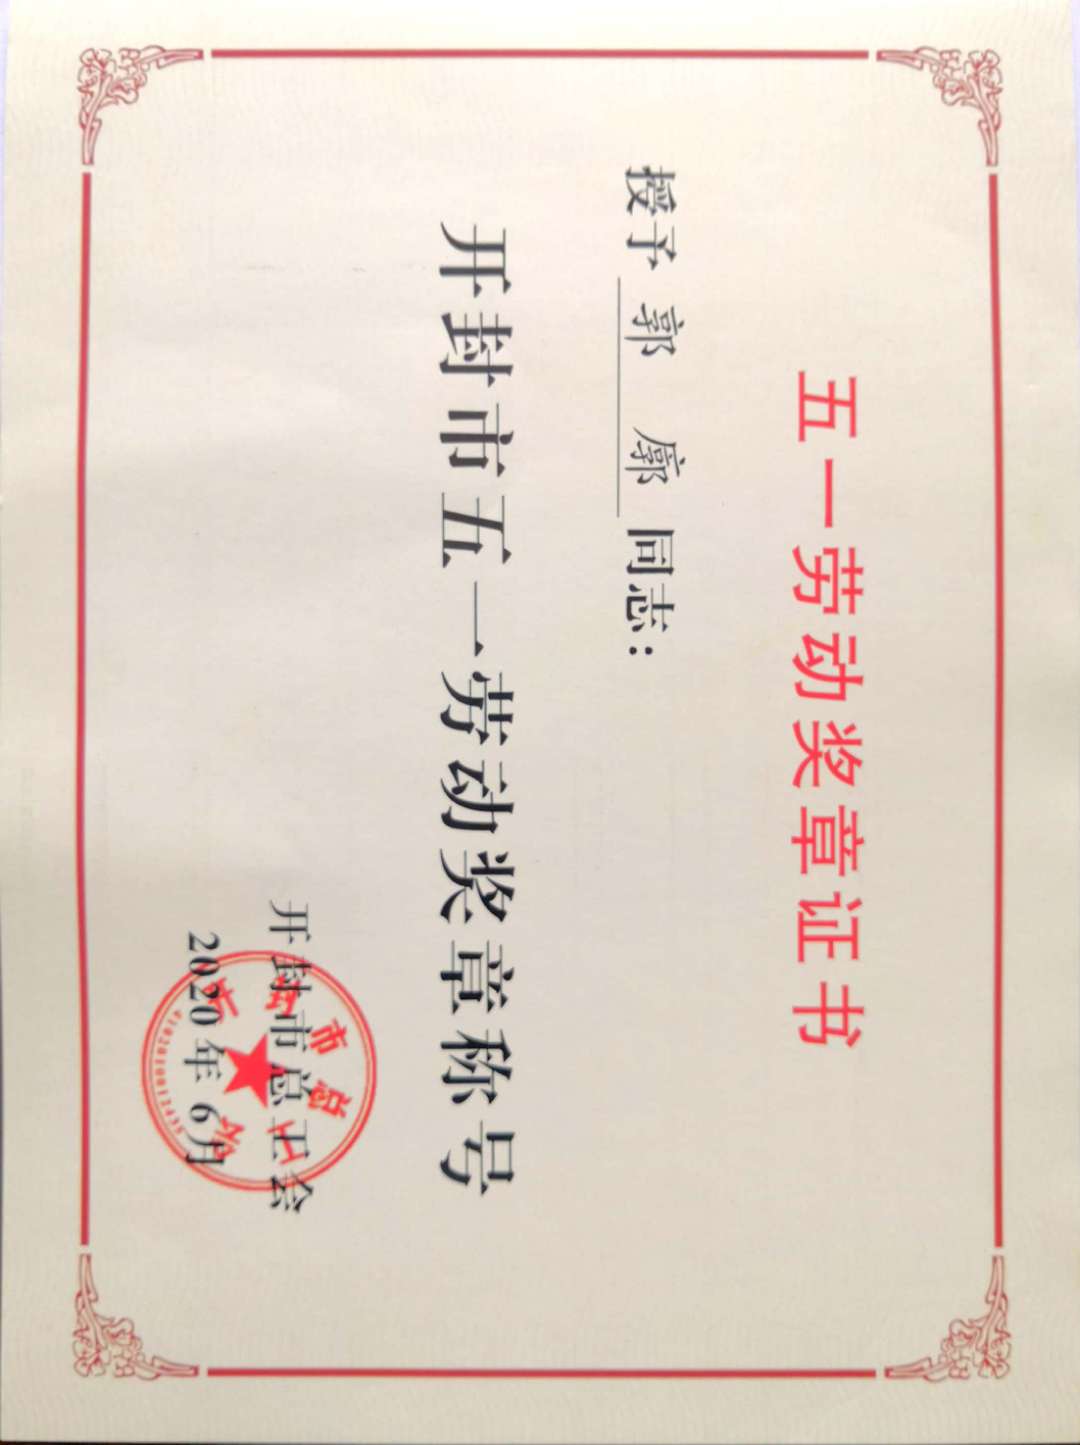 五一劳动奖章证书
授予 郭 廓 同志：
开封市五一劳动奖章称号
开封市总工会
2020年6月
开封市总工会